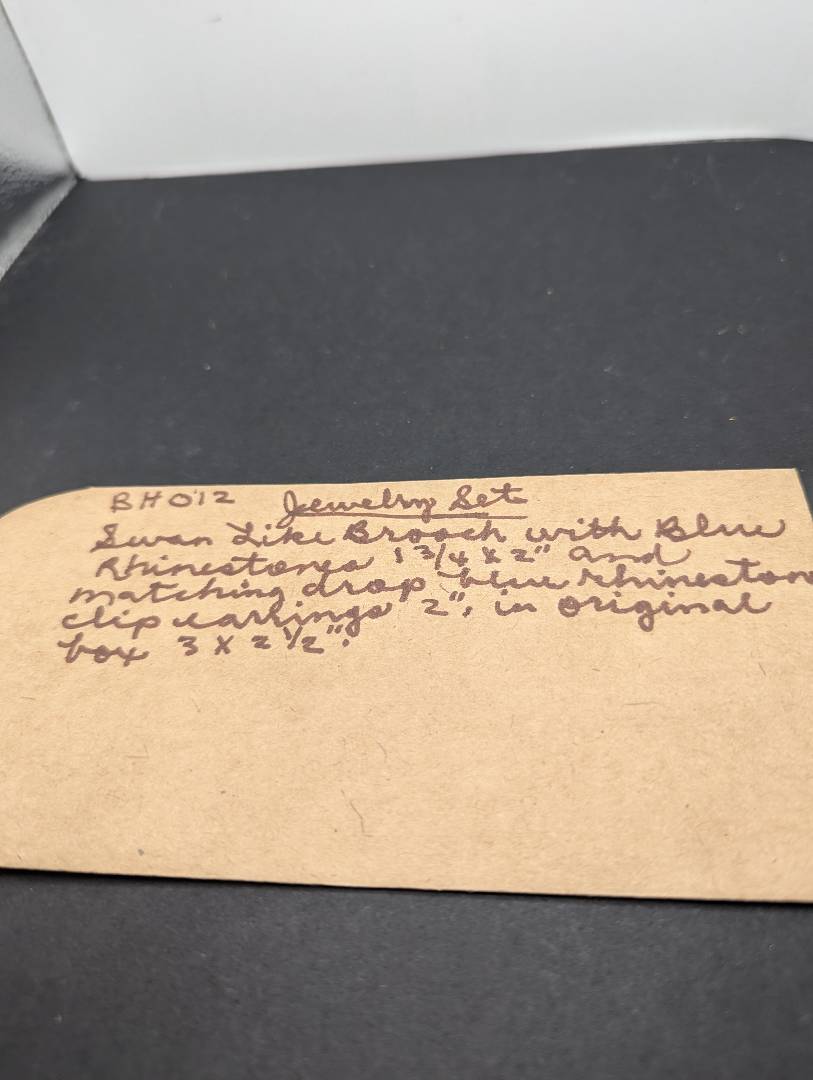 BH012 Jewelry Set
Swan Like Brooch with Blue
Rhinestones 1 3/4 X 2" and
matching drop blue rhineston
clip earrings 2", in original
box 3 X 2 1/2".